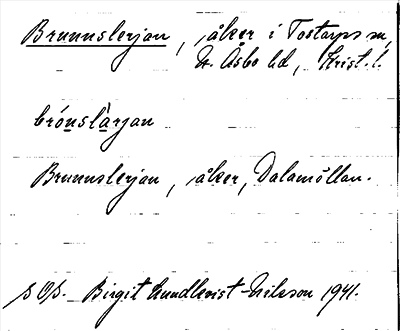 Brunnslerjan, åker i Tostarps sn,
N. Åsbo hd, Krist. l.
brónslàrjan
Brunnslerjan, åker, Dalamöllan.
s Os. Birgit Lundkvist-Nilsson 1941.